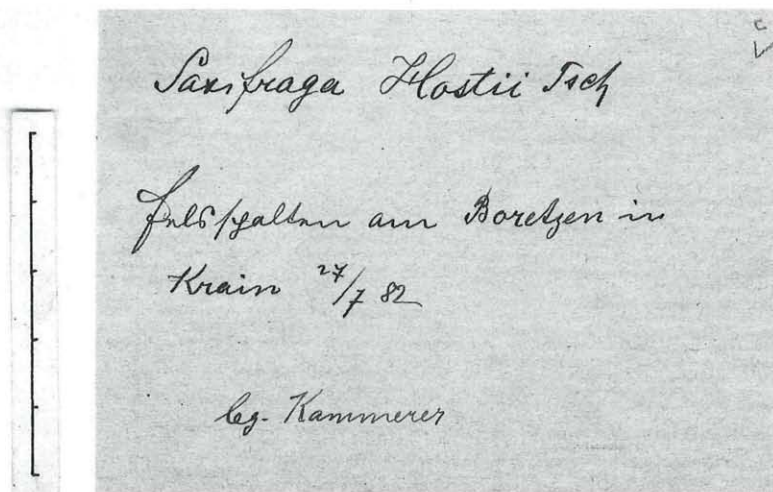 Saxifraga Hostii Tsch
Felsspalten am Boretzen in
Krain 27/7 82
leg. Kammerer